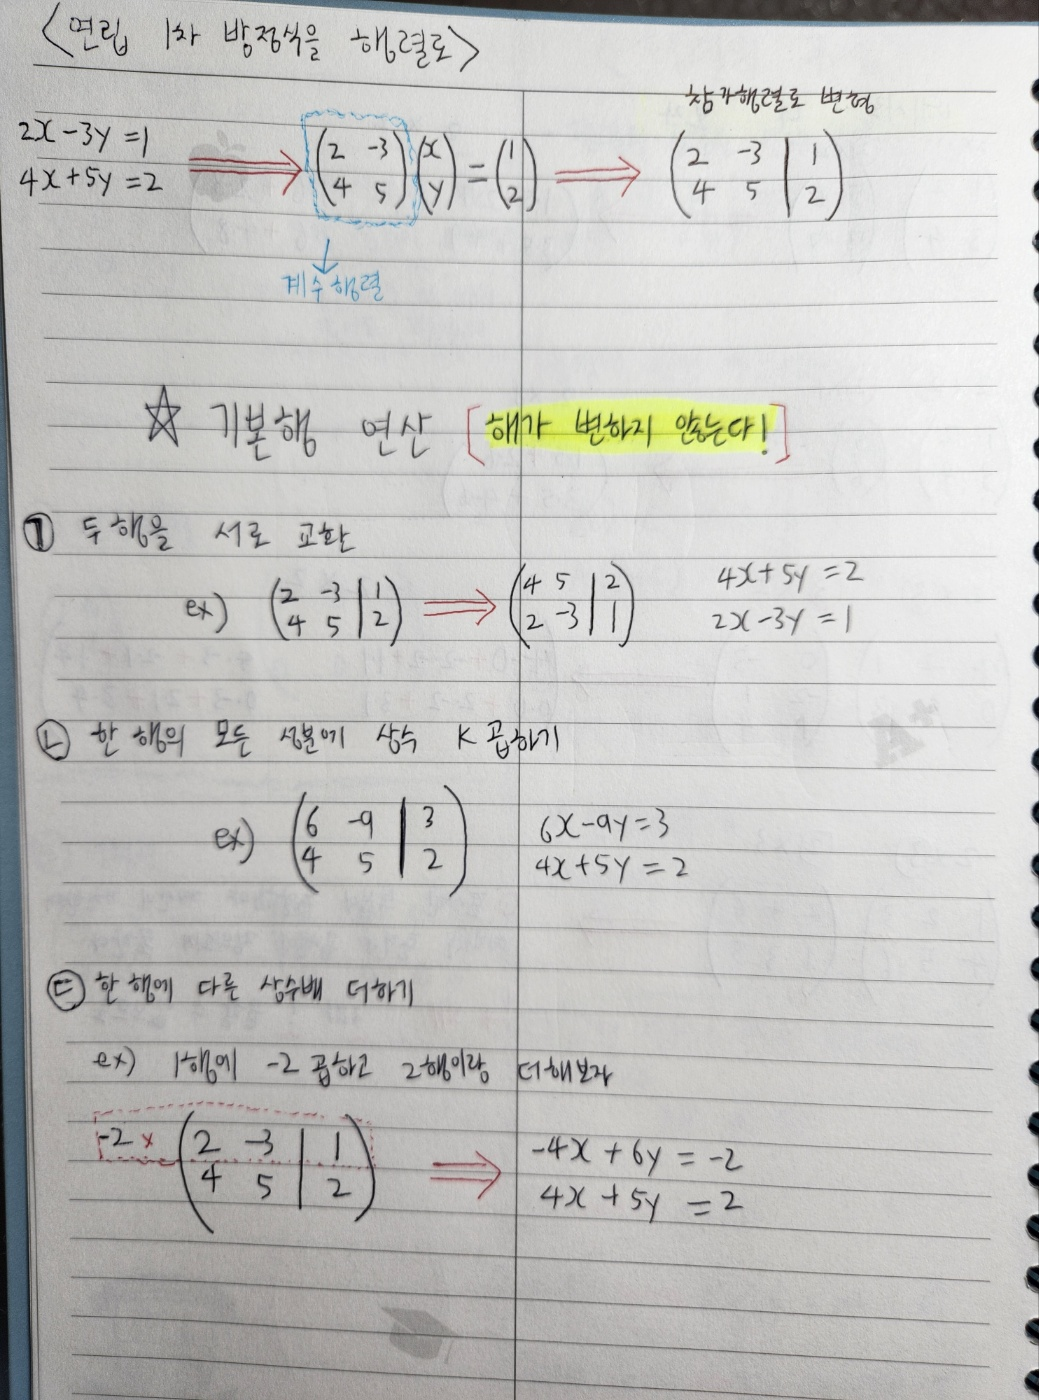 <연립 1차 방정식을 행렬로>
첨가행렬로 변형
2x-3y=1
4x+5y=2
⇒ (2 -3
4 5) (x
y) = (1
2) ⇒ (2 -3 | 1
4 5 | 2)
↓
계수행렬
☆ 기본행 연산 [해가 변하지 않는다!]
㉠ 두 행을 서로 교환
ex) (2 -3 | 1
4 5 | 2) ⇒ (4 5 | 2
2 -3 | 1)
4x+5y=2
2x-3y=1
㉡ 한 행의 모든 성분에 상수 K 곱하기
ex) (6 -9 | 3
4 5 | 2)
6x-9y=3
4x+5y=2
㉢ 한 행에 다른 상수배 더하기
ex) 1행에 -2 곱하고 2행이랑 더해보자
-2 × (2 -3 | 1
4 5 | 2) ⇒
-4x+6y=-2
4x+5y=2